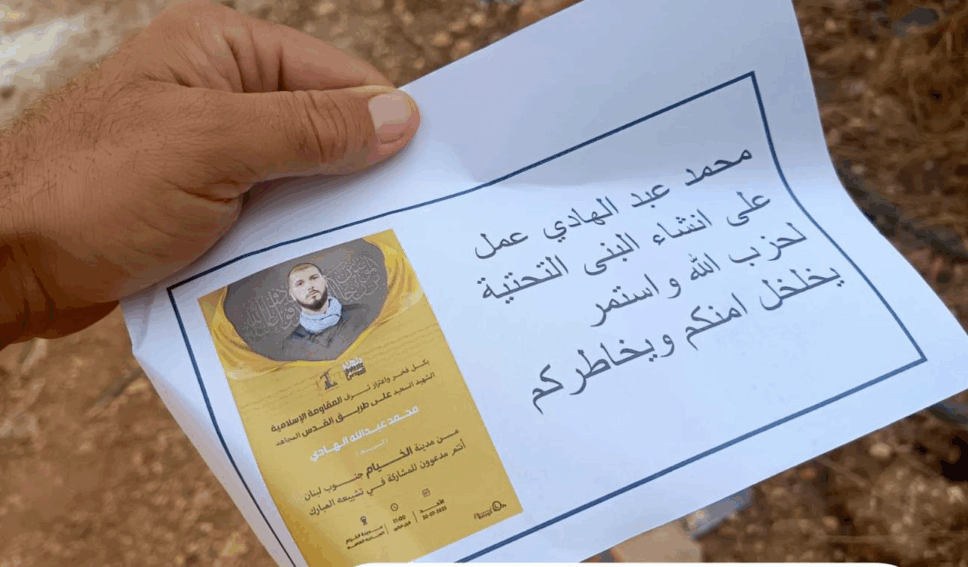 محمد عبد الهادي عمل
على انشاء البنى التحتية
لحزب الله واستمر
يخلخل امنكم ويخاطركم
بكل فخر واعتزاز تزف المقاومة الإسلامية
الشهيد السعيد على طريق القدس المجاهد
محمد عبدالله الهادي
من مدينة الخيام جنوب لبنان
أنتم مدعوون للمشاركة في تشييعه المبارك
11:00